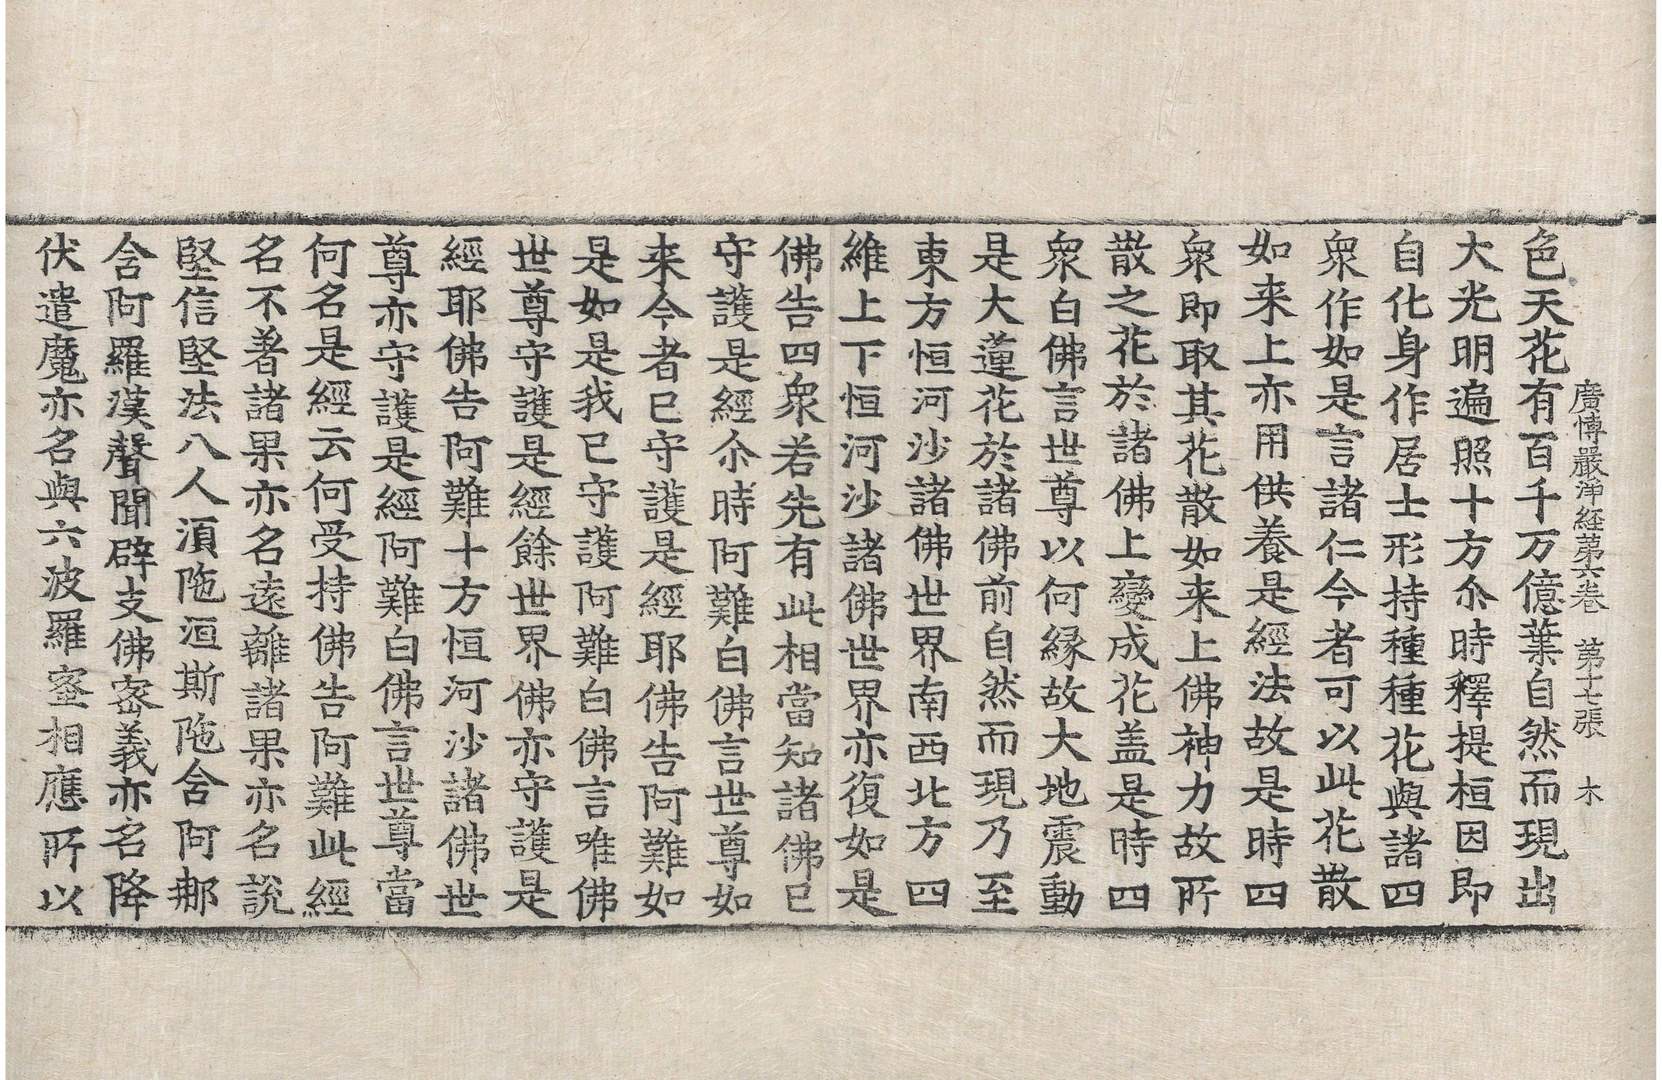 廣博嚴淨經第六卷　第十七張　木
色天花有百千万億葉自然而現出
大光明遍照十方尒時釋提桓因即
自化身作居士形持種種花與諸四
衆作如是言諸仁今者可以此花散
如来上亦用供養是經法故是時四
衆即取其花散如来上佛神力故所
散之花於諸佛上變成花盖是時四
衆白佛言世尊以何緣故大地震動
是大蓮花於諸佛前自然而現乃至
東方恒河沙諸佛世界南西北方四
維上下恒河沙諸佛世界亦復如是
佛告四衆若先有此相當知諸佛已
守護是經尒時阿難白佛言世尊如
来今者已守護是經耶佛告阿難如
是如是我已守護阿難白佛言唯佛
世尊守護是經餘世界佛亦守護是
經耶佛告阿難十方恒河沙諸佛世
尊亦守護是經阿難白佛言世尊當
何名是經云何受持佛告阿難此經
名不著諸果亦名遠離諸果亦名說
堅信堅法八人湏陁洹斯陁含阿那
含阿羅漢聲聞辟支佛宻義亦名降
伏遣魔亦名與六波羅宻相應所以